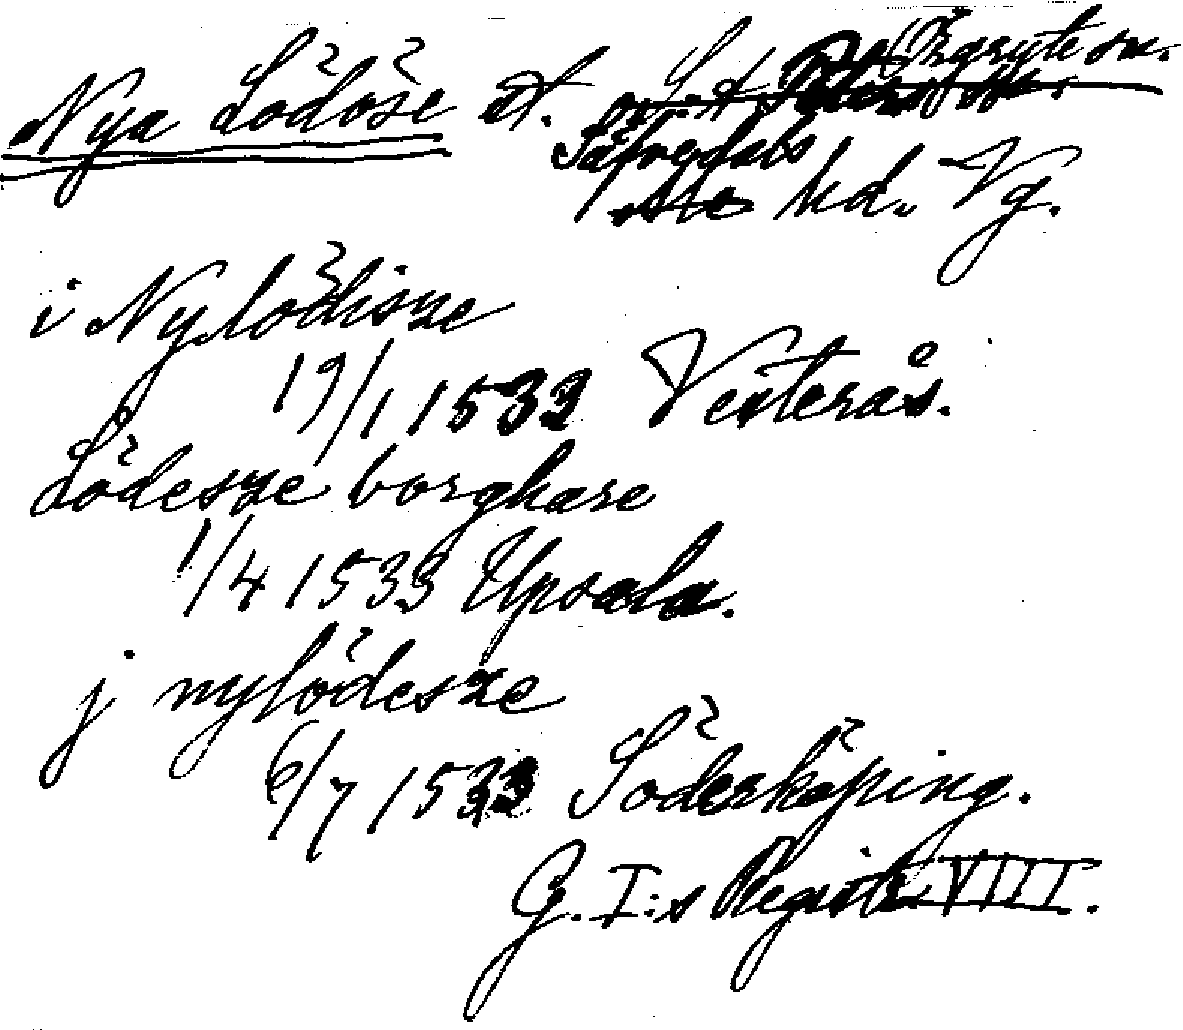 Nya Lödöse st. (Örgryte sn.
Säfvedals hd. Vg.
i Nylödisze
19/1 1533 Vesterås.
Lödesze borghare
1/4 1533 Upsala.
j nylödesze
6/7 1533 Söderköping.
G. I:s Registr. VIII.